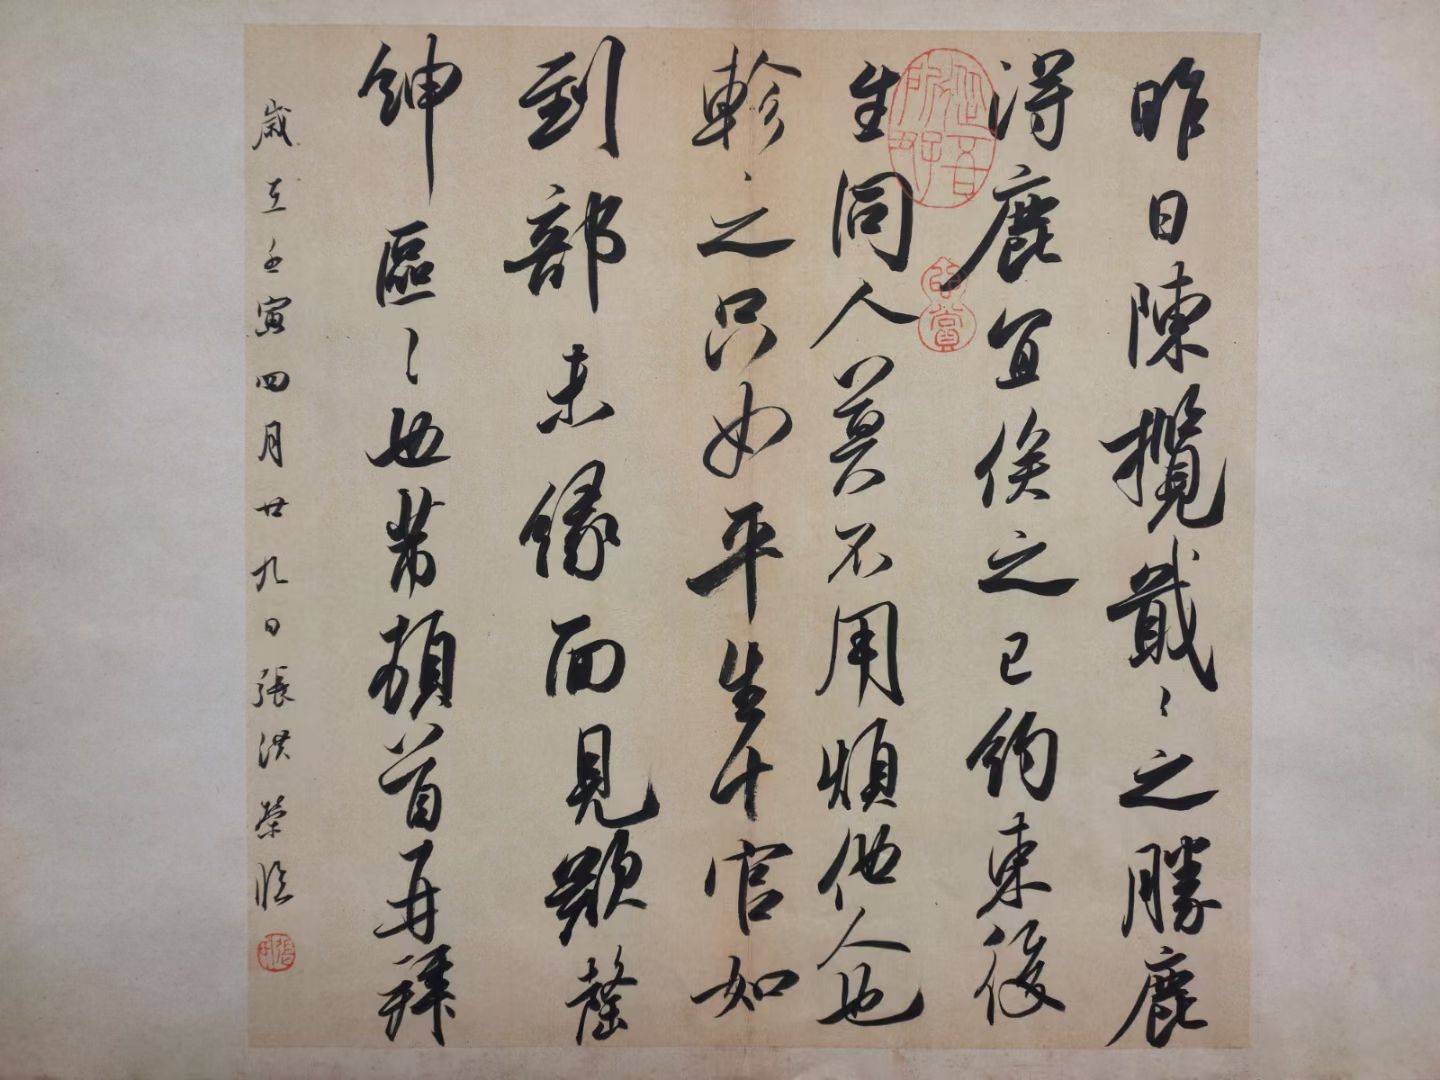 昨日陳攬戢戢之勝鹿
得鹿宜俟之已約束後
生同人莫不用煩他人也
軫之只如平生十官如
到部未緣面見欵罄
紳區區也芾頓首再拜
歲在壬寅四月廿九日張洪榮臨